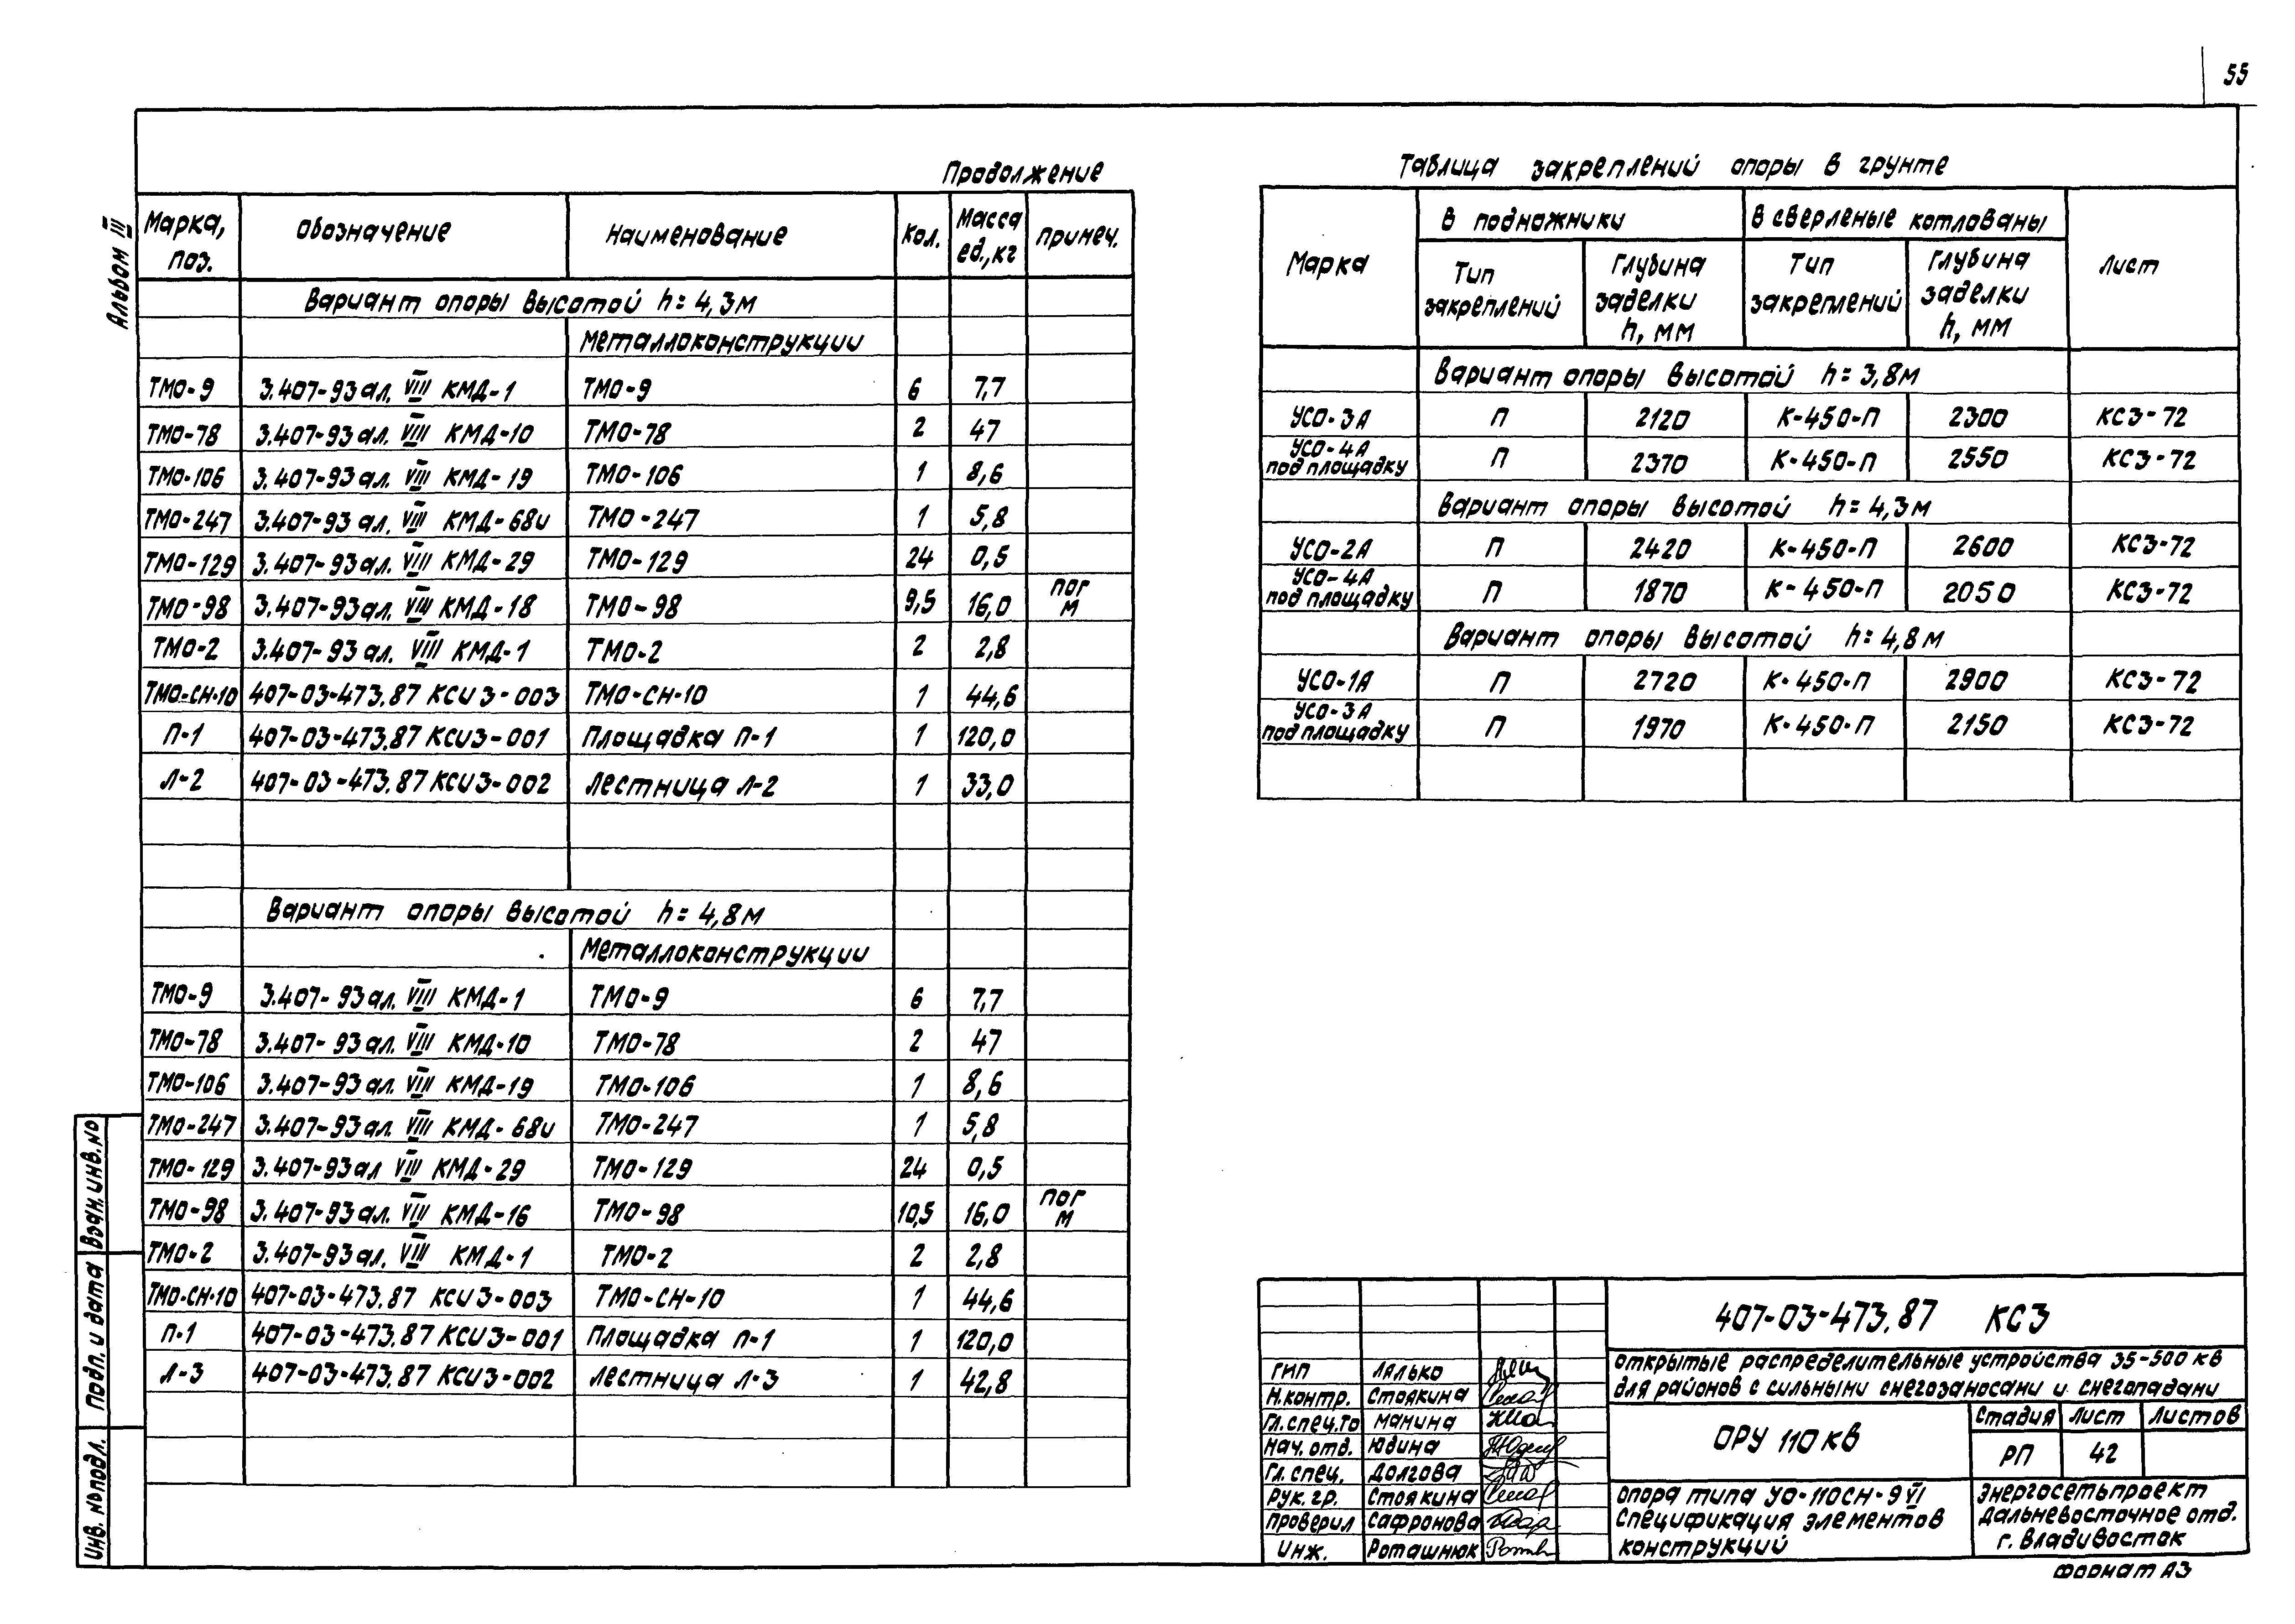 55
Альбом III
Продолжение
Марка, поз. Обозначение Наименование Кол. Масса ед., кг Примеч.
Вариант опоры высотой h=4,3м
Металлоконструкции
ТМО-9 3.407-93 ал. VIII КМД-1 ТМО-9 6 7,7
ТМО-78 3.407-93 ал. VIII КМД-10 ТМО-78 2 47
ТМО-106 3.407-93 ал. VIII КМД-19 ТМО-106 1 8,6
ТМО-247 3.407-93 ал. VIII КМД-68и ТМО-247 1 5,8
ТМО-129 3.407-93 ал. VIII КМД-29 ТМО-129 24 0,5
ТМО-98 3.407-93 ал. VIII КМД-18 ТМО-98 9,5 16,0 пог м
ТМО-2 3.407-93 ал. VIII КМД-1 ТМО-2 2 2,8
ТМО-СН-10 407-03-473.87 КСИ3-003 ТМО-СН-10 1 44,6
П-1 407-03-473.87 КСИ3-001 Площадка П-1 1 120,0
Л-2 407-03-473.87 КСИ3-002 Лестница Л-2 1 33,0
Вариант опоры высотой h=4,8м
Металлоконструкции
ТМО-9 3.407-93 ал. VIII КМД-1 ТМО-9 6 7,7
ТМО-78 3.407-93 ал. VIII КМД-10 ТМО-78 2 47
ТМО-106 3.407-93 ал. VIII КМД-19 ТМО-106 1 8,6
ТМО-247 3.407-93 ал. VIII КМД-68и ТМО-247 1 5,8
ТМО-129 3.407-93 ал VIII КМД-29 ТМО-129 24 0,5
ТМО-98 3.407-93 ал. VIII КМД-16 ТМО-98 10,5 16,0 пог м
ТМО-2 3.407-93 ал. VIII КМД-1 ТМО-2 2 2,8
ТМО-СН-10 407-03-473.87 КСИ3-003 ТМО-СН-10 1 44,6
П-1 407-03-473.87 КСИ3-001 Площадка П-1 1 120,0
Л-3 407-03-473.87 КСИ3-002 Лестница Л-3 1 42,8
Таблица закреплений опоры в грунте
Марка В подножники В сверленые котлованы Лист
Тип закреплений Глубина заделки h, мм Тип закреплений Глубина заделки h, мм
Вариант опоры высотой h=3,8м
УСО-3А П 2120 К-450-П 2300 КС3-72
УСО-4А под площадку П 2370 К-450-П 2550 КС3-72
Вариант опоры высотой h=4,3м
УСО-2А П 2420 К-450-П 2600 КС3-72
УСО-4А под площадку П 1870 К-450-П 2050 КС3-72
Вариант опоры высотой h=4,8м
УСО-1А П 2720 К-450-П 2900 КС3-72
УСО-3А под площадку П 1970 К-450-П 2150 КС3-72
407-03-473.87 КС3
Открытые распределительные устройства 35-500 кв
для районов с сильными снегозаносами и снегопадами
ГИП Лялько
Н.контр. Стоякина
Гл.спец.ТО Манина
Нач. отд. Юдина
Гл. спец. Долгова
Рук. гр. Стоякина
Проверил Сафронова
Инж. Роташнюк
ОРУ 110 кв
Стадия Лист Листов
РП 42
Опора типа УО-110СН-9 VI
Спецификация элементов
конструкций
Энергосетьпроект
Дальневосточное отд.
г. Владивосток
Формат А3
Взам. инв. №
Подп. и дата
Инв. № подл.